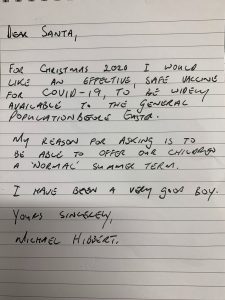 DEAR SANTA,
FOR CHRISTMAS 2020 I WOULD
LIKE AN EFFECTIVE, SAFE VACCINE
FOR COVID-19, TO BE WIDELY
AVAILABLE TO THE GENERAL
POPULATION BEFORE EASTER.
MY REASON FOR ASKING IS TO
BE ABLE TO OFFER OUR CHILDREN
A 'NORMAL' SUMMER TERM.
I HAVE BEEN A VERY GOOD BOY.
YOURS SINCERELY,
MICHAEL HIBBERT.